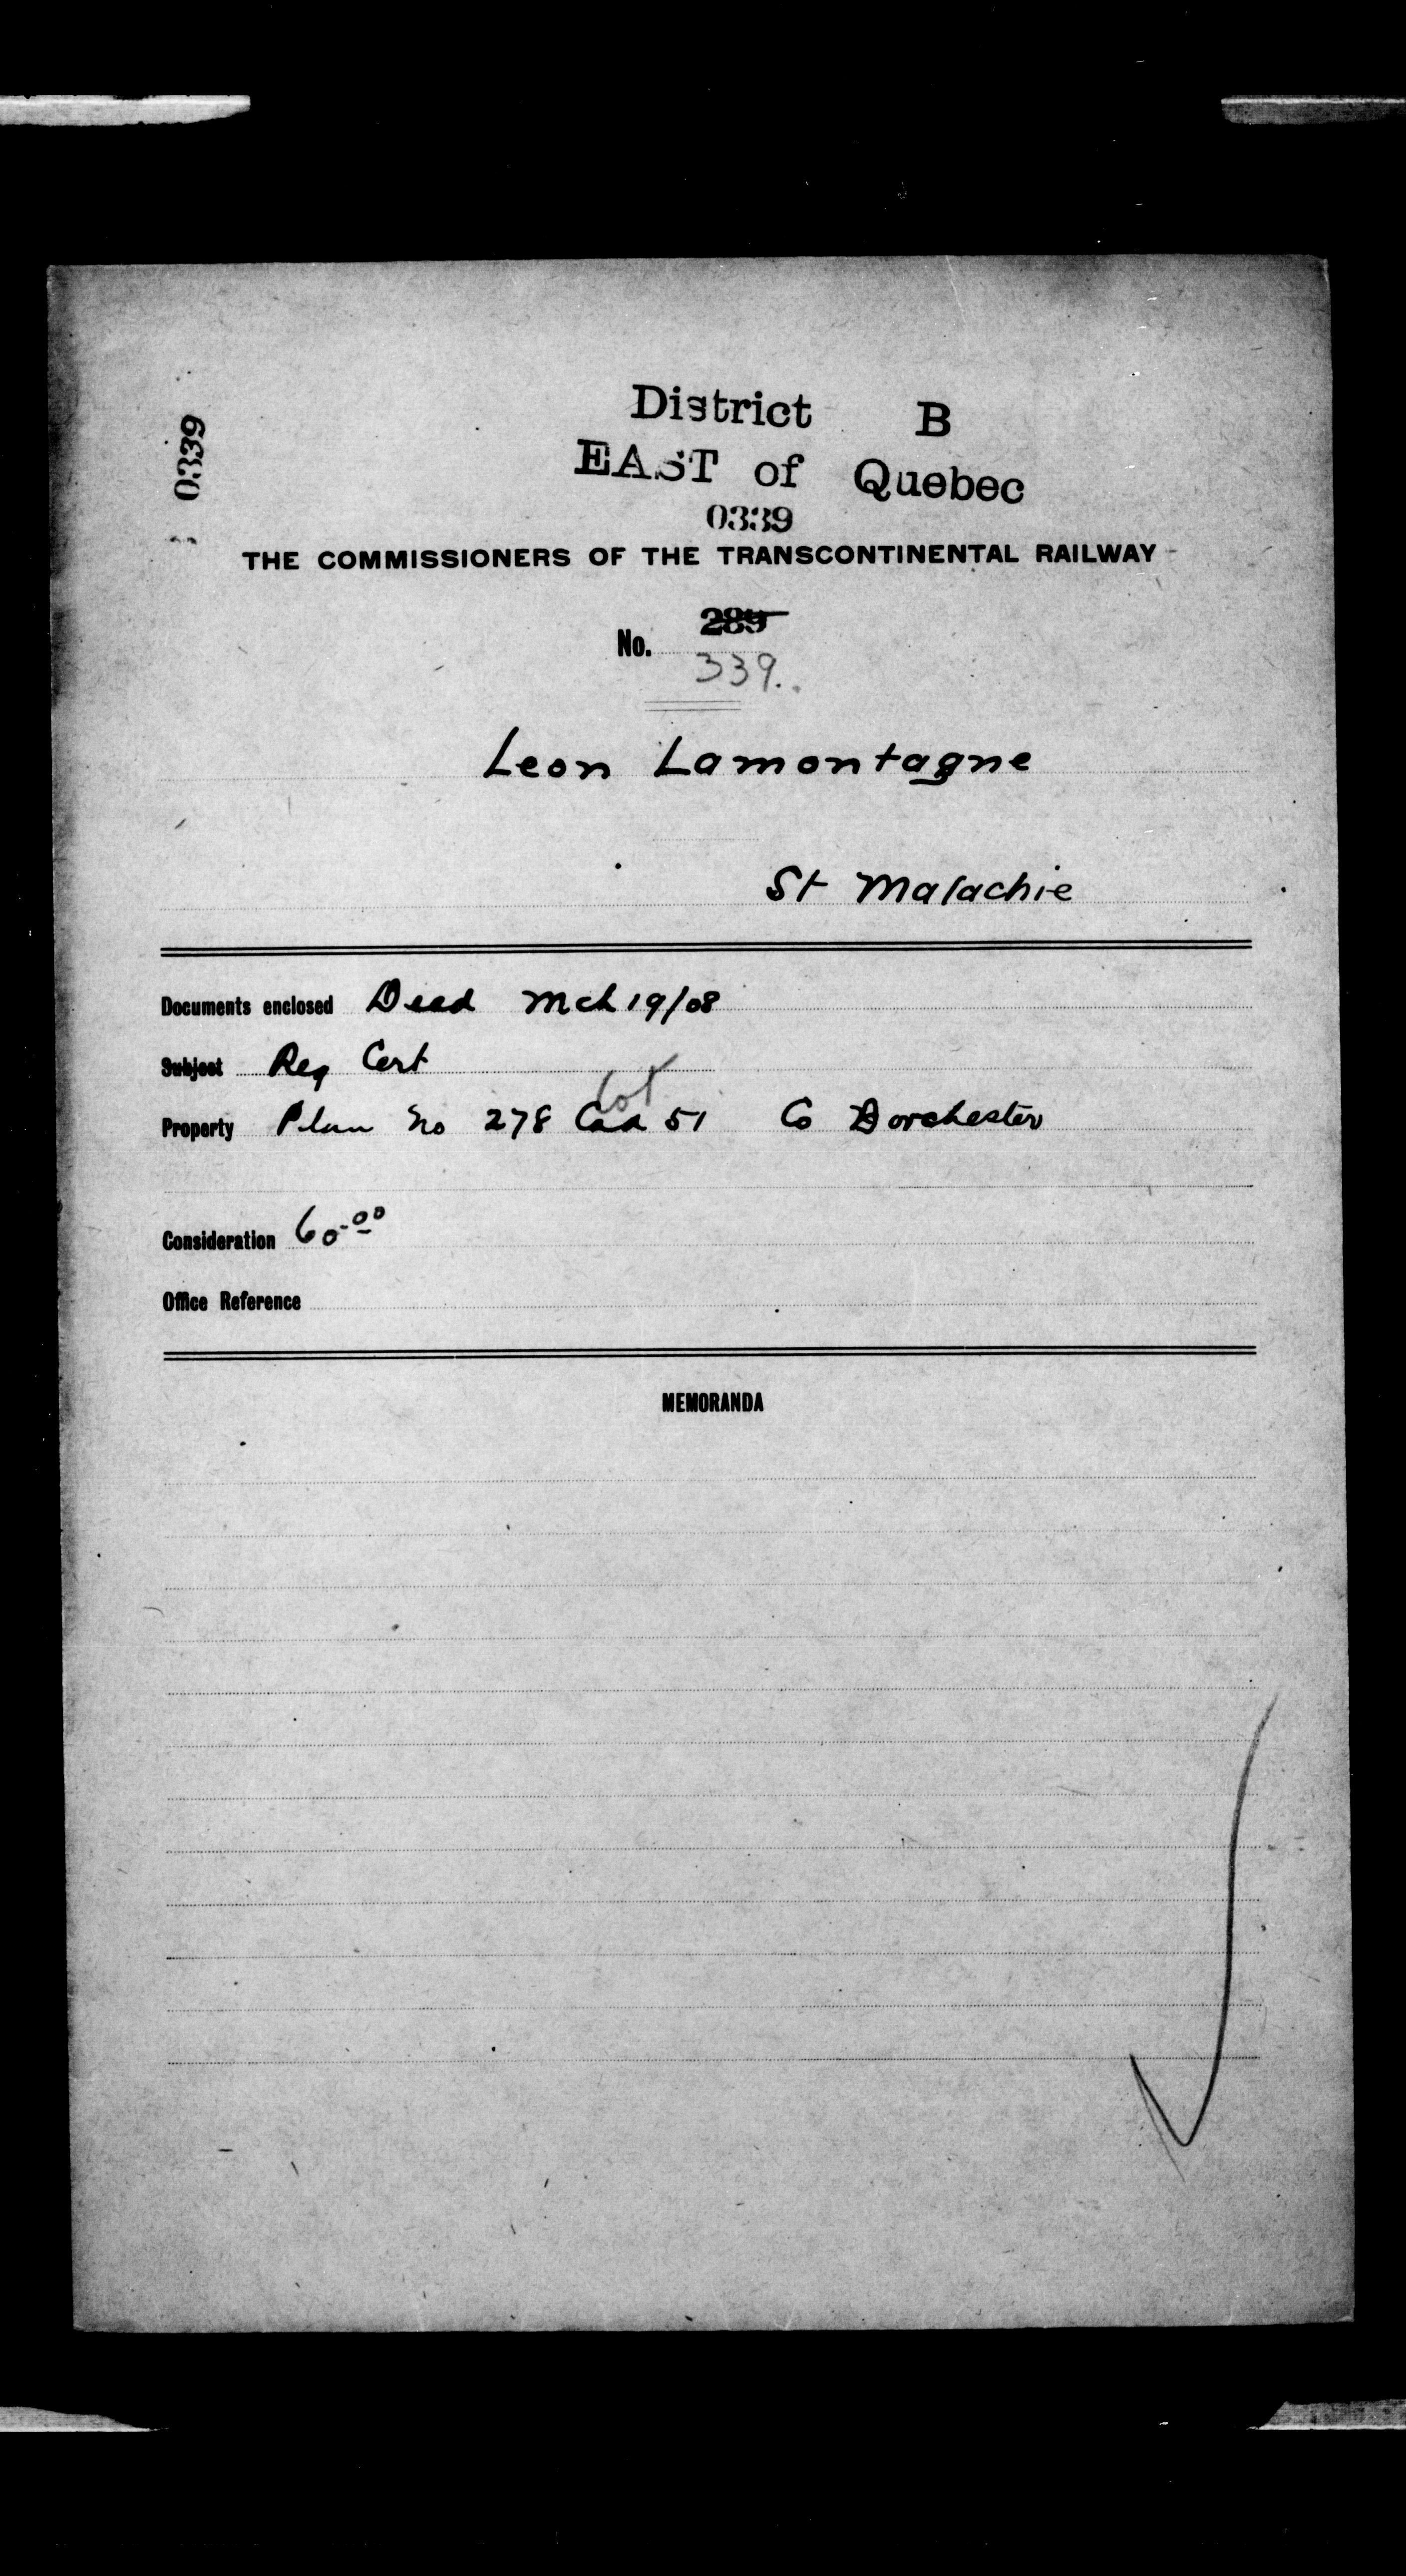 0339
District B
EAST of Quebec
0339
THE COMMISSIONERS OF THE TRANSCONTINENTAL RAILWAY
289
No.
339.
Leon Lamontagne
St Malachie
Documents enclosed Deed Mch 19/08
Subject Reg Cert
Lot
Property Plan No 278 Cad 51 Co Dorchester
Consideration 60.00
Office Reference
MEMORANDA